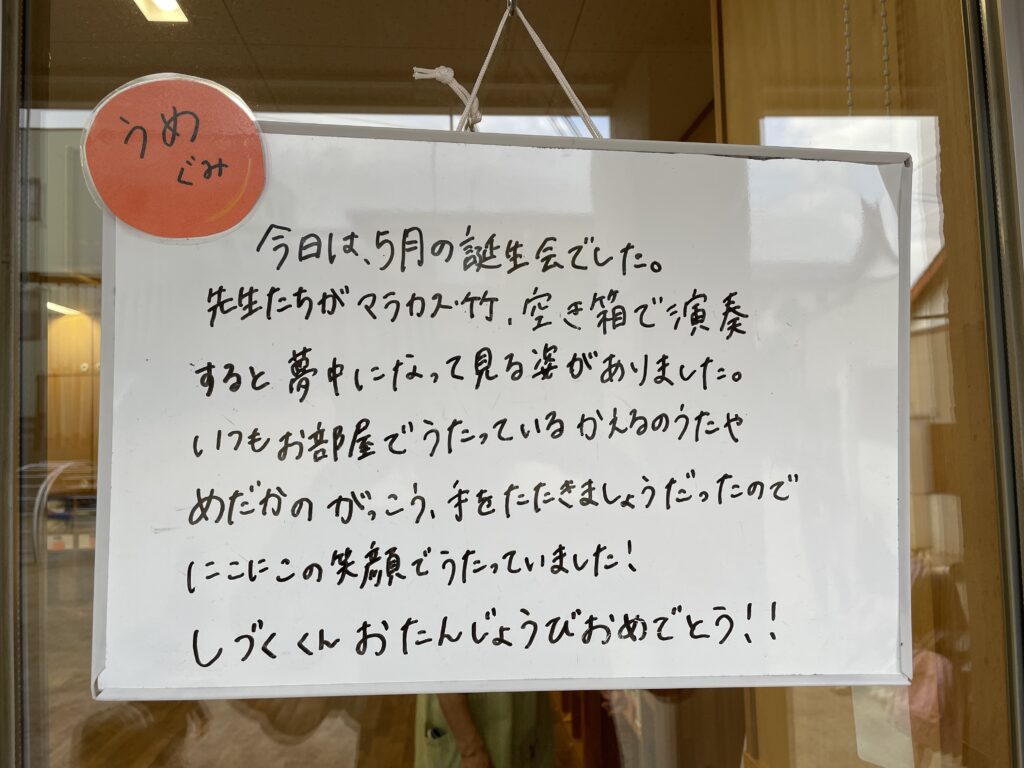 うめ
ぐみ
今日は、5月の誕生会でした。
先生たちがマラカス・竹、空き箱で演奏
すると夢中になって見る姿がありました。
いつもお部屋でうたっているかえるのうたや
めだかのがっこう、手をたたきましょうだったので
にこにこの笑顔でうたっていました!
しづくくんおたんじょうびおめでとう!!